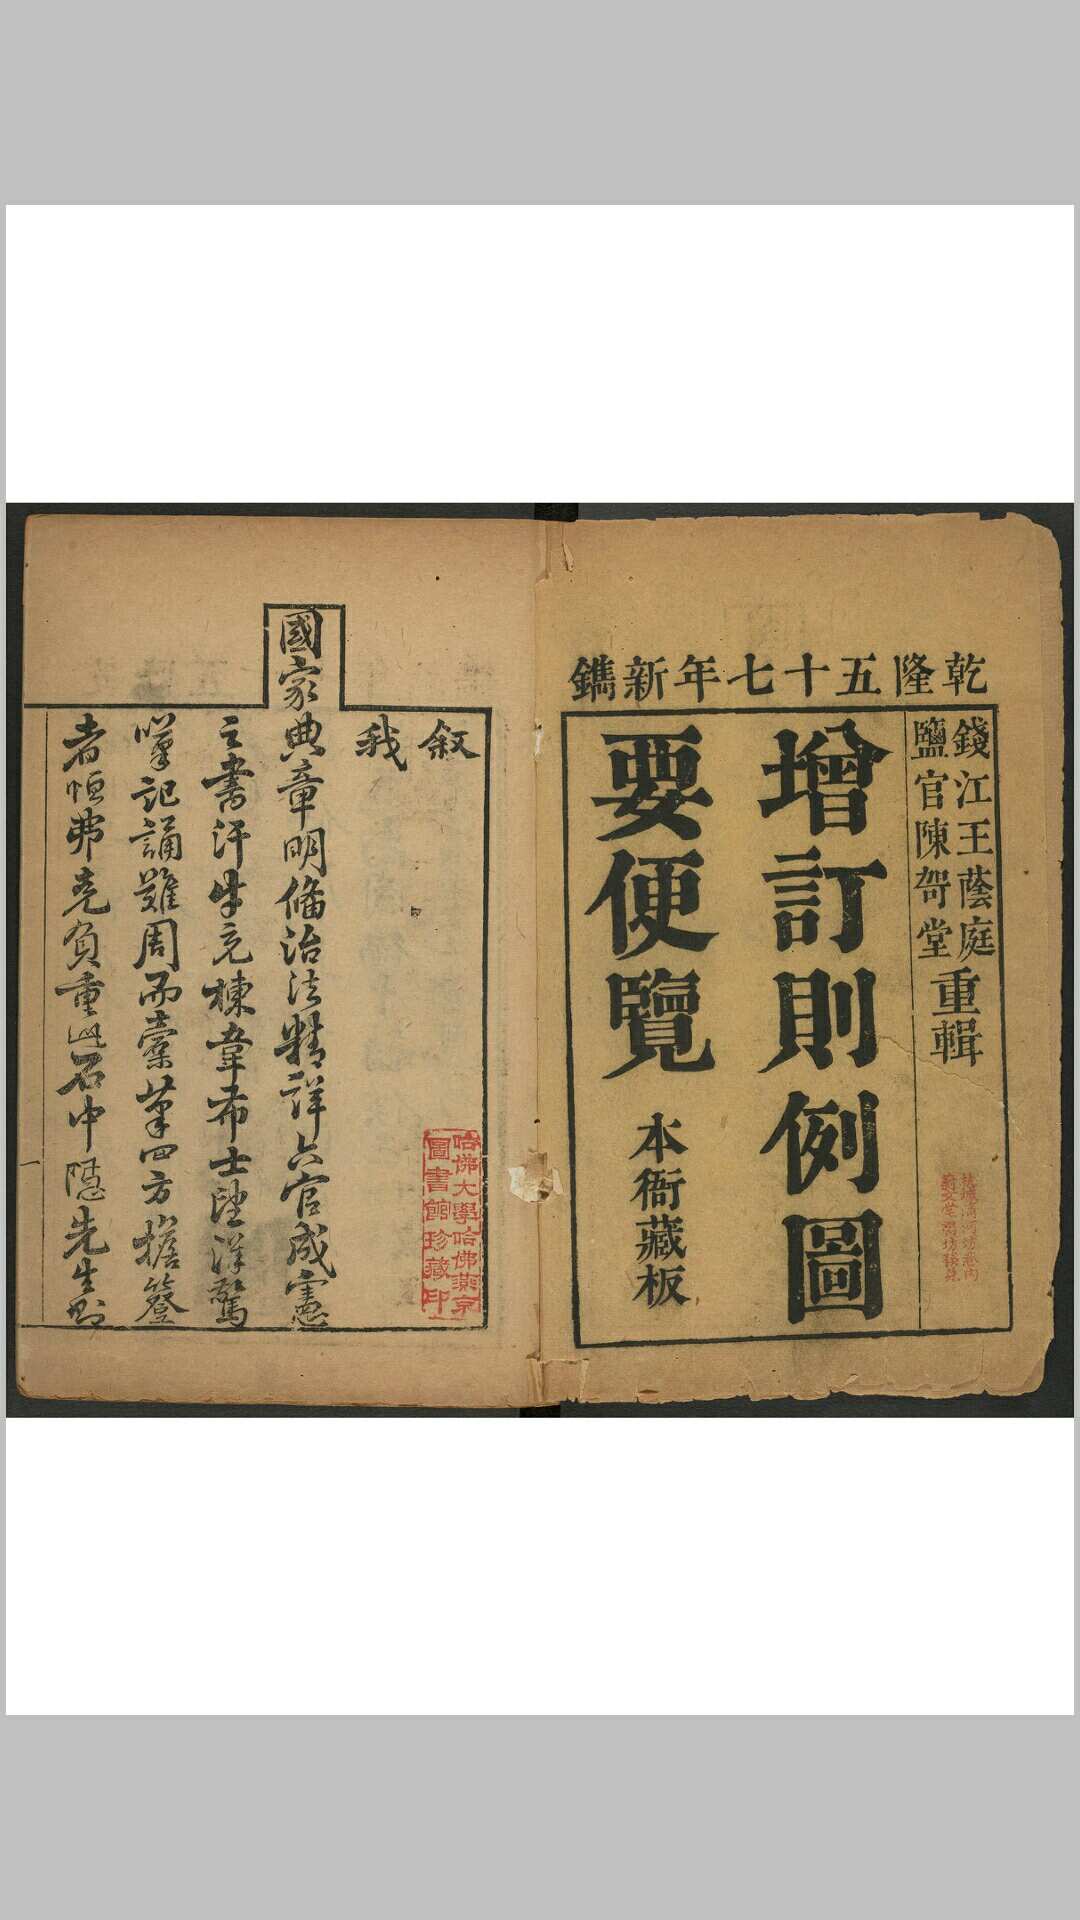 乾隆五十七年新鐫
錢江王蔭庭
鹽官陳硤堂
重輯
增訂則例圖
要便覽
本衙藏板
叙
我
國家典章明備治法精詳六官成憲
之書汗牛充棟韋布士望洋驚
嘆記誦難周而橐筆四方擔簦
者恒弗克負重此石中隱先生則
一
哈佛大學哈佛燕京
圖書館珍藏印